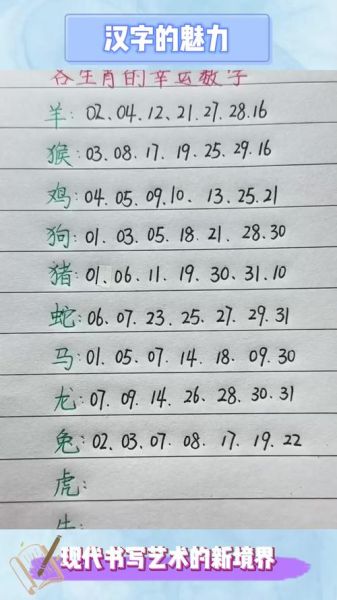 汉字的魅力
各生肖的幸运数字
羊: 02.04.12.21.27.28.16
猴: 03.08.17.19.25.29.16
鸡: 04.05.09.10.13.25.21
狗: 01.03.05.18.21.28.30
猪: 01.06.11.19.30.31.10
蛇: 06.07.23.25.27.29.31
马: 01.05.07.14.18.09.30
龙: 07.09.14.26.28.30.31
兔: 02.03.07.08.17.19.22
虎:
现代书写艺术的新境界